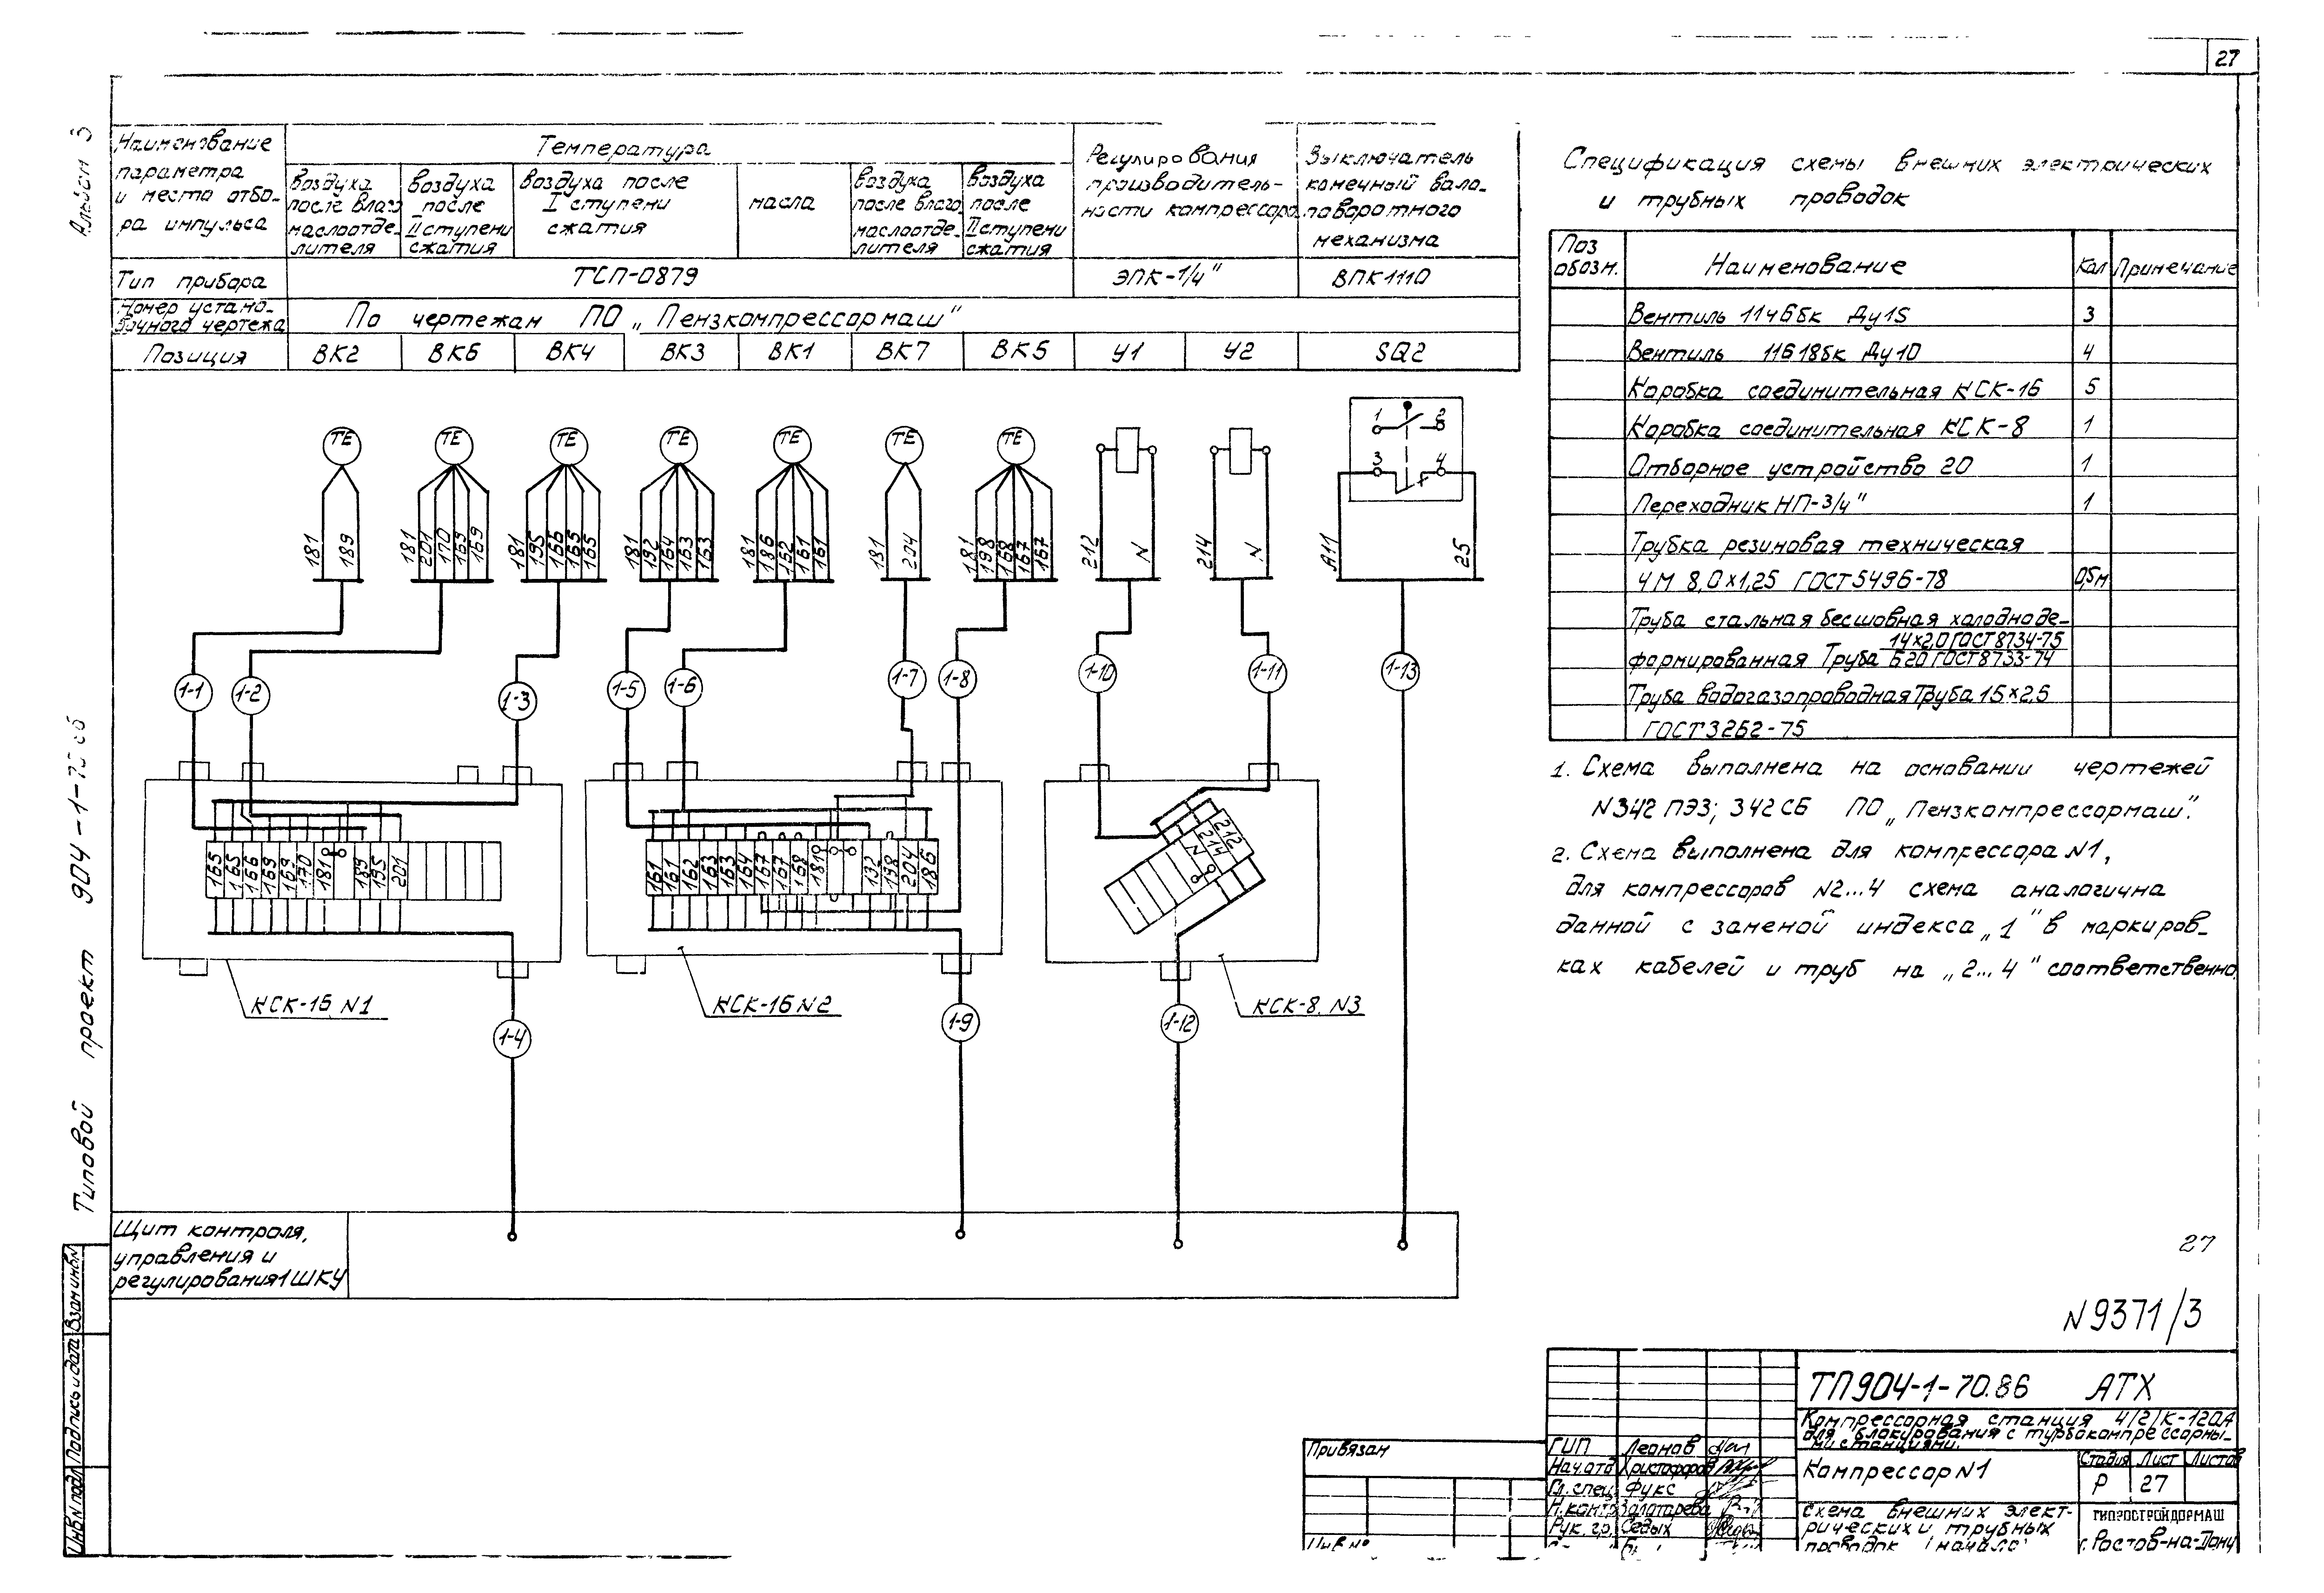 27
Альбом 3
Типовой проект 904-1-
Наименование параметра и место отбо-
ра импульса
Температура
воздуха после влаго
маслоотде-
лителя
воздуха после II ступени сжатия
воздуха после I ступени сжатия
масла
воздуха после влаго
маслоотде-
лителя
воздуха после II ступени сжатия
Регулирования производитель-
ности компрессора
Выключатель конечный вало-
поворотного механизма
Тип прибора
ТСП-0879
ЭПК-1/4"
ВПК1110
Номер устано-
вочного чертежа
По чертежам ПО „Пензкомпрессормаш"
Позиция
ВК2
ВК6
ВК4
ВК3
ВК1
ВК7
ВК5
У1
У2
SQ2
TE TE TE TE TE TE TE
1 2
3 4
181 189
181 201 170 169 169
181 195 166 165 165
181 192 164 163 163
181 186 162 161 161
181 204
181 198 168 167 167
212 N
214 N
А11 25
1-1
1-2
1-3
1-5
1-6
1-7
1-8
1-10
1-11
1-13
165 165 166 169 169 170 181 189 195 201
161 161 162 163 163 164 167 167 168 181 192 198 204 186
N 214 212
КСК-16 N1
КСК-16 N2
КСК-8 N3
1-4
1-9
1-12
Щит контроля,
управления и
регулирования 1ШКУ
Спецификация схемы внешних электрических
и трубных проводок
Поз обозн.
Наименование
Кол
Примечание
Вентиль 11ч6бк Ду15 3
Вентиль 11Б18бк Ду10 4
Коробка соединительная КСК-16 5
Коробка соединительная КСК-8 1
Отборное устройство 20 1
Переходник НП-3/4" 1
Трубка резиновая техническая
4М 8,0×1,25 ГОСТ5496-78 0,5м
Труба стальная бесшовная холодноде-
формированная Труба 14×2,0 ГОСТ8734-75
Б20 ГОСТ8733-74
Труба водогазопроводная Труба 15×2,5
ГОСТ3262-75
1. Схема выполнена на основании чертежей
N342 ПЭ3; 342 СБ ПО „Пензкомпрессормаш".
2. Схема выполнена для компрессора N1,
для компрессоров N2...4 схема аналогична
данной с заменой индекса „1" в маркиров-
ках кабелей и труб на „2...4" соответственно.
27
N9371/3
ТП904-1-70.86 АТХ
Компрессорная станция 4/2/К-120А
для блокирования с турбокомпрессорны-
ми станциями.
Компрессор N1
Стадия Лист Листов
Р 27
Схема внешних элект-
рических и трубных
проводок (начало)
ГИПРОСТРОЙДОРМАШ
г.Ростов-на-Дону
Привязан
Инв №
ГИП Леонов
Нач.отд Христофоров
Гл.спец. Фукс
Н.конт. Золотарева
Рук. гр. Седых
Взам инв N
Подпись и дата
Инв N подл